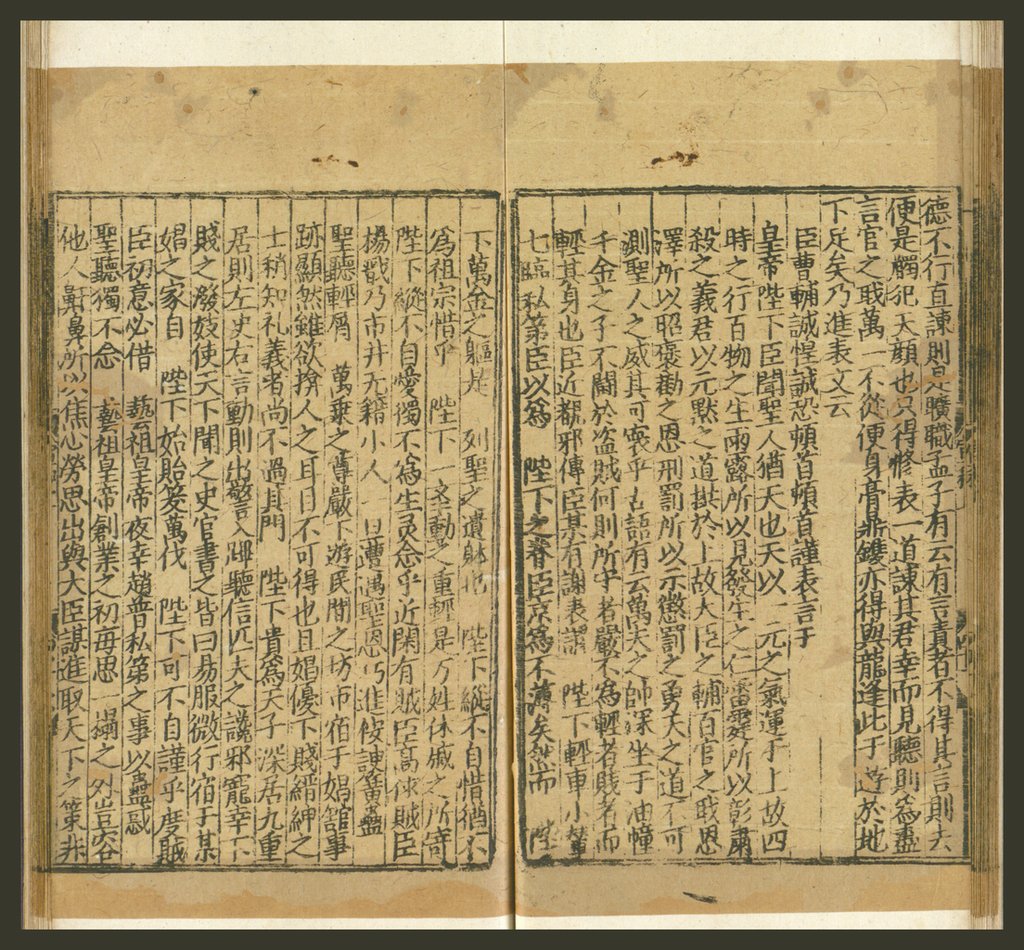 德不行直諫則是曠職孟子有云有言責者不得其言則去
便是觸犯天顔也只得修表一道諫其君幸而見聽則爲盡
言官之戝萬一不從便身膏鼎鑊亦得與龍逢比干遊於地
下足矣乃進表文云
臣曹輔誠惶誠恐頓首頓首謹表言于
皇帝陛下臣聞聖人猶天也天以一元之氣運于上故四
時之行百物之生雨露所以見發生之仁雷霆所以彰肅
殺之義君以元默之道拱於上故大臣之輔百官之戝恩
澤所以昭褒勸之恩刑罰所以示懲罰之勇天之道不可
測聖人之威其可䙝乎古語有云萬夫之帥深坐于油幢
千金之子不鬬於盗賊何則所乎者嚴不爲輕者賤者而
輕其身也臣近覩邪傳臣某有謝表謂 陛下輕車小輦
七臨私第臣以爲 陛下之眷臣京爲不薄矣然而 陛
下萬金之軀是 列聖之遺躰也 陛下縱不自惜猶不
爲祖宗惜乎 陛下一𨔝動之重輕是万姓休戚之所寄
陛下縱不自愛獨不爲生灵念乎近閑有賊臣高俅賊臣
楊戩乃市井无籍小人 一旦遭遇聖恩巧進佞諛簧蠱
聖聽輕屑 萬乘之尊嚴下游民間之坊市宿于娼館事
跡顯然雖欲揜人之耳目不可得也且娼優下賤縉紳之
士稍知礼義者尚不過其門 陛下貴爲天子深居九重
居則左史右言動則出警入蹕聽信匹夫之讒邪寵幸下
賤之潑妓使天下聞之史官書之皆曰易服微行宿于某
娼之家自 陛下始貽笑萬代 陛下可不自謹乎度賊
臣初意必借 藝祖皇帝夜幸趙普私第之事以蠱惑
聖聽獨不念 藝祖皇帝創業之初毎思一榻之外豈容
他人鼾鼻所以焦心勞思出與大臣謀進取天下之策非